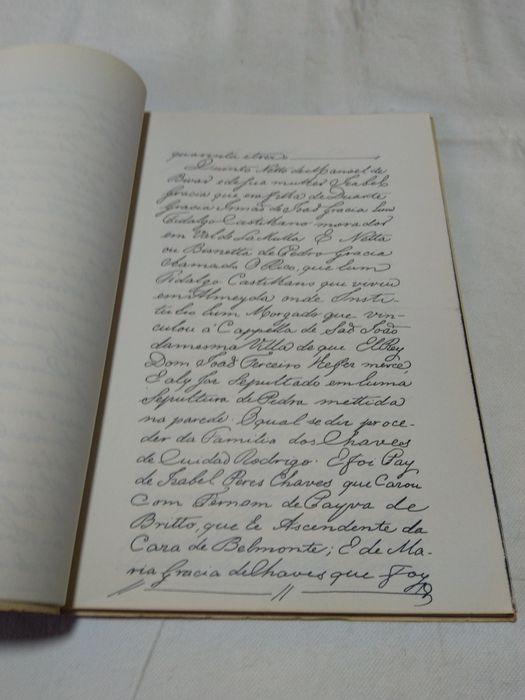 quarenta e tres
Quinto Netto de Manoel de
Bivar e de sua mulher Izabel
Gracia que era filha de Duarte
Gracia Irmaõ de Joaõ Gracia hum
Fidalgo Castelhano morador
em Val de La Mulla E Netta
ou Bisnetta de Pedro Gracia
chamado O Rico, que hum
Fidalgo Castelhano que viveu
em Almeyda onde Insti-
tuhio hum Morgado que vin-
culou á Cappella de Saõ Joaõ
da mesma Villa de que ElRey
Dom Joaõ Terceiro lhe fes merce,
E aly foi Sepultado em huma
Sepultura de Pedra mettida
na parede. O qual se diz proce-
der da Familia dos Chaves
de Cuidad Rodrigo. E foi Pay
de Izabel Peres Chaves que Cazou
Com Fernam de Payva de
Britto, que he Ascendente da
Caza de Belmonte; E de Ma-
ria Gracia de Chaves que foy